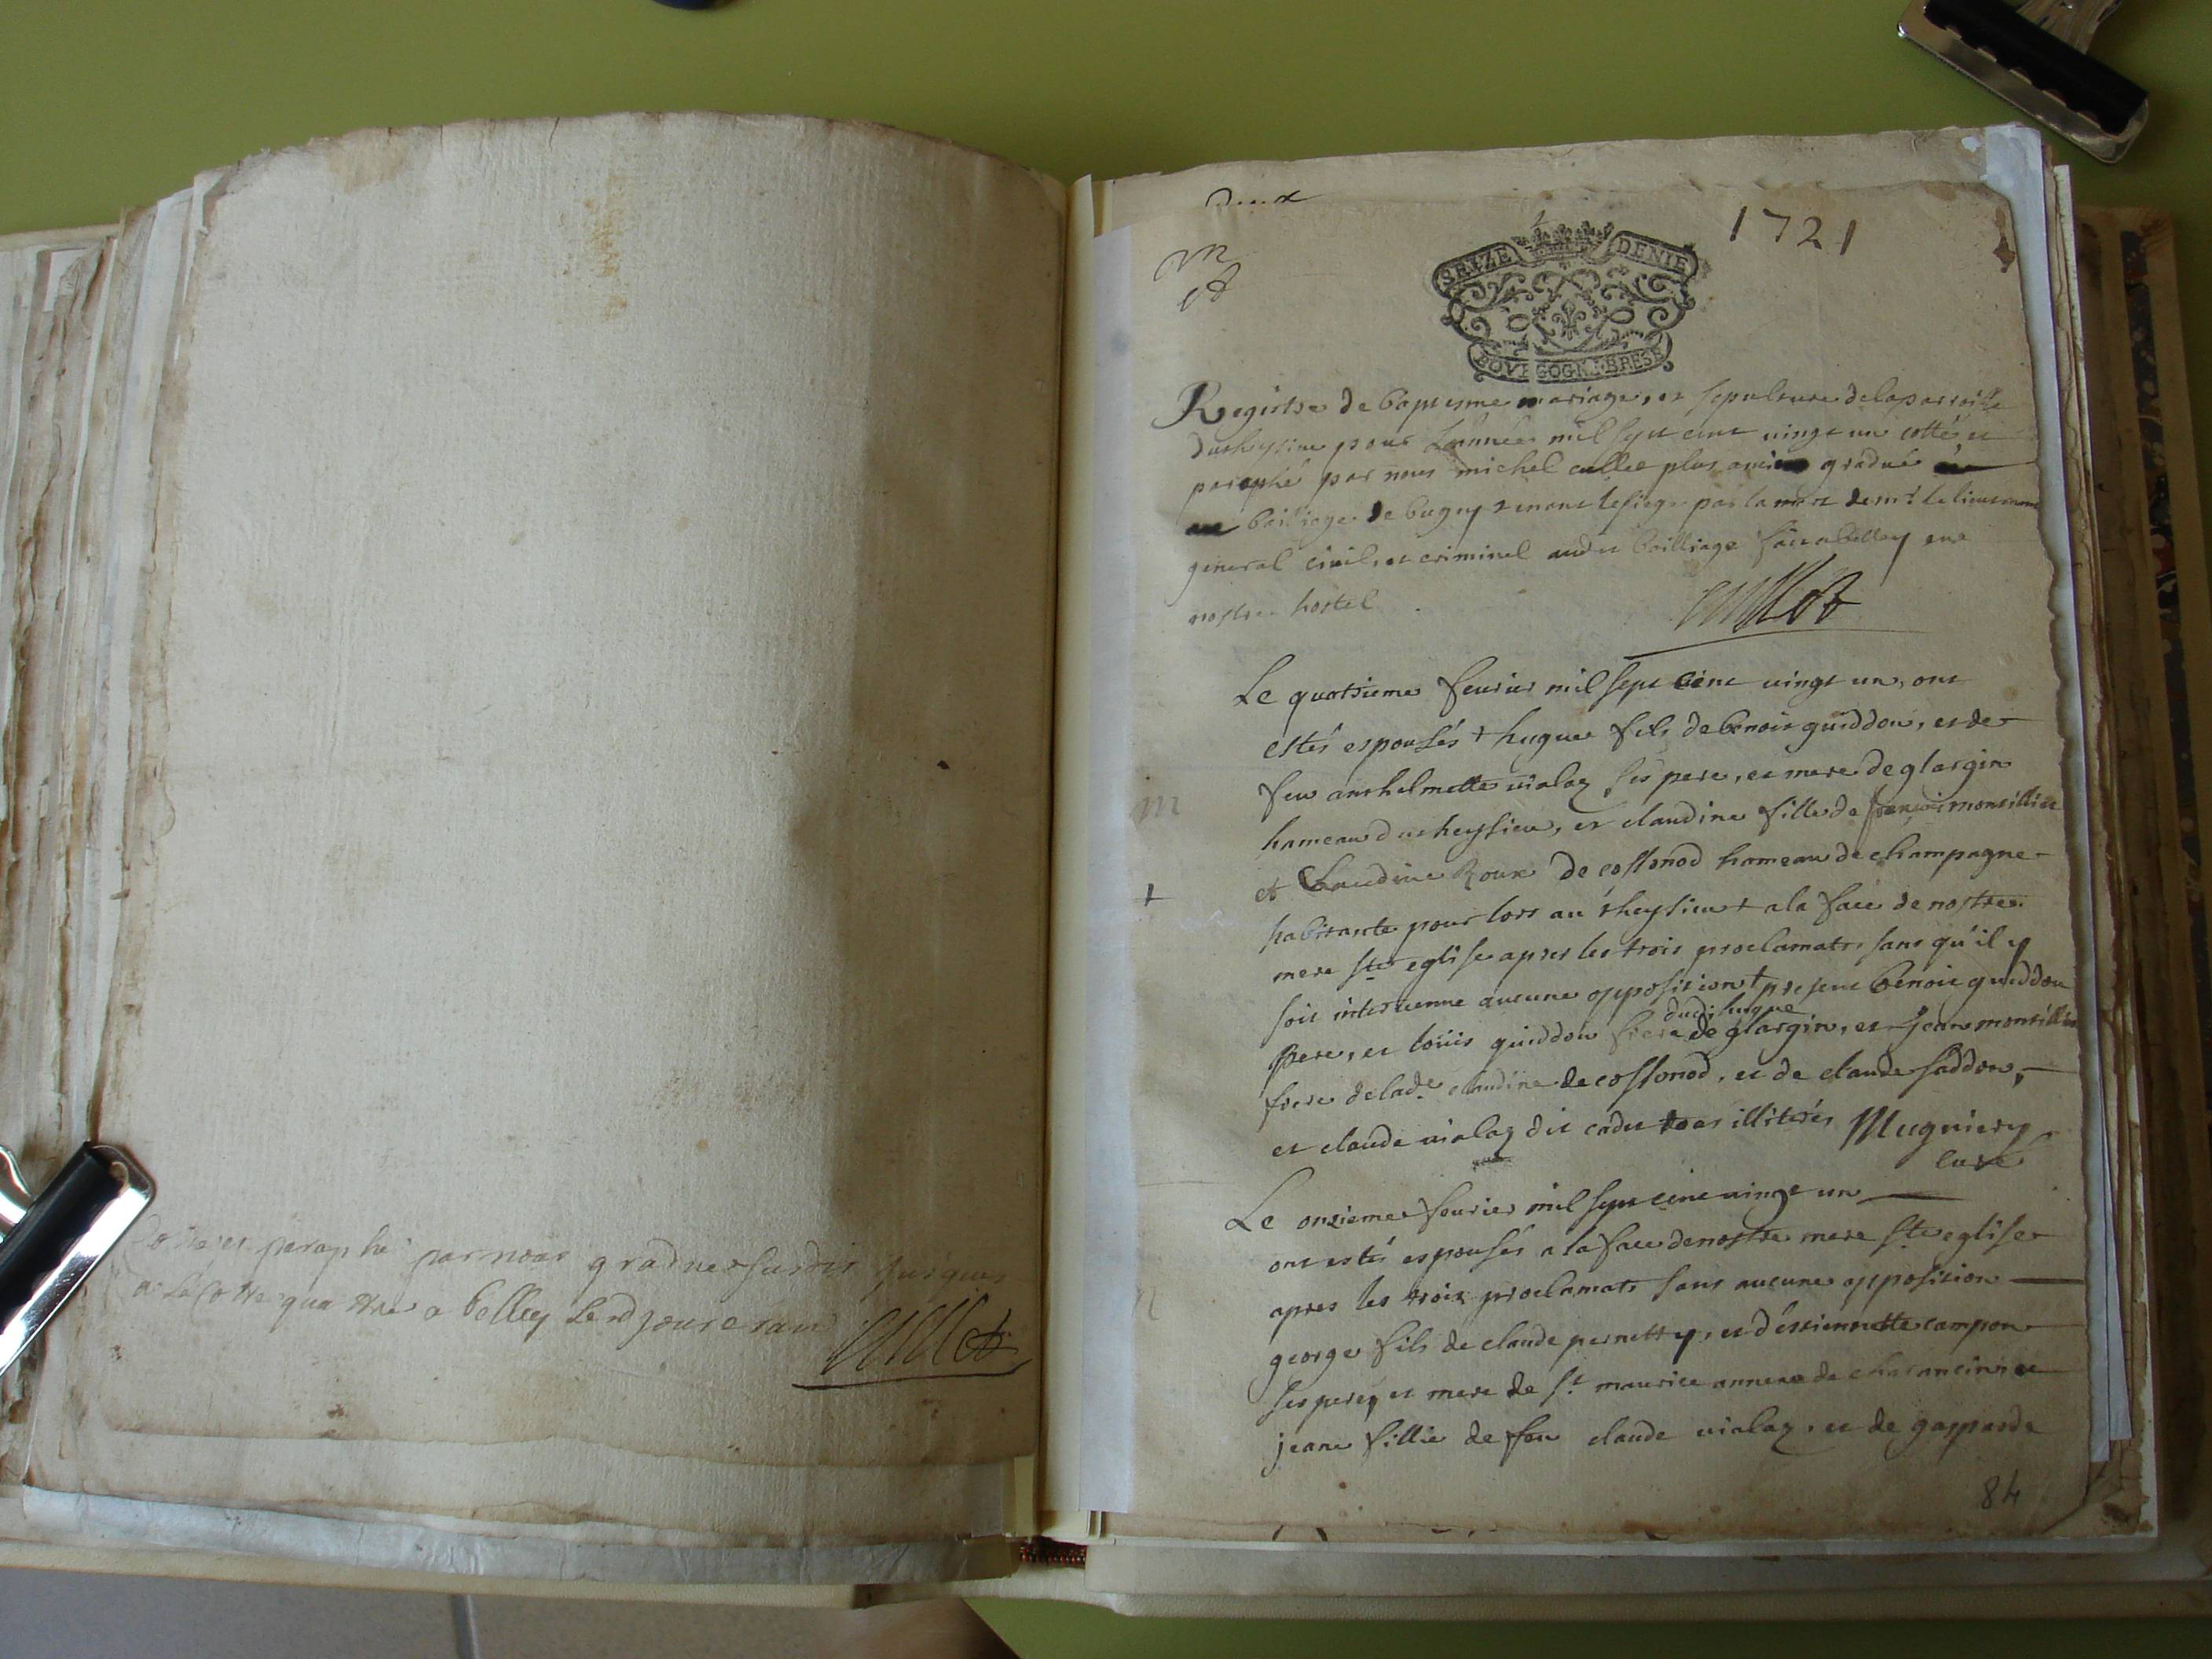 Cotté et paraphé par nous gradué susdit jusques
a la cotte quatre a belley led jour et an
Cullet
deux
1721
SEIZE DENIE
BOVRGOGN.BRESE
Registre de baptesme mariage, et sepulture dela parroisse
dutheysieu pour Lannée mil sept cent vingt un cotté, et
paraphé par nous michel cullet plus ancien gradué
au bailliage de bugey tenant le siege par la mort de mr. le lieutenant
general civil, et criminel audit bailliage fait a belley en
nostre hostel
Cullet
Le quatrieme fevrier mil sept cent vingt un, ont
estés espousés + hugue fils de benoit guiddon, et de
feu anthelmette vialaz ses pere, et mere de glargin
m
hameau dutheysieu, et claudine fille de françois monsillier
et Claudine Roux de cossonod hameau de champagne
+
habitante pour lors au theysieu + a la face de nostre
mere ste eglise apres les trois proclamats sans qu'il y
soit intervenue aucune opposition + present benoit guiddon
dudit hugue
pere, et loüis guiddon frere de glargin, et jean monsillier
frere de lade. claudine de cossonod, et de claude saddon,
et claude vialaz dit cadet tous illiterés Mugniery
curé
Le onzieme fevrier mil sept cent vingt un
ont estés espousés a la face de nostre mere ste eglise
apres les trois proclamats sans aucune opposition
george fils de claude pernetty, et d'estiennette campon
ses pere, et mere de st maurice annexe de charancin, et
jeane fillie de feu claude vialaz, et de gasparde
84